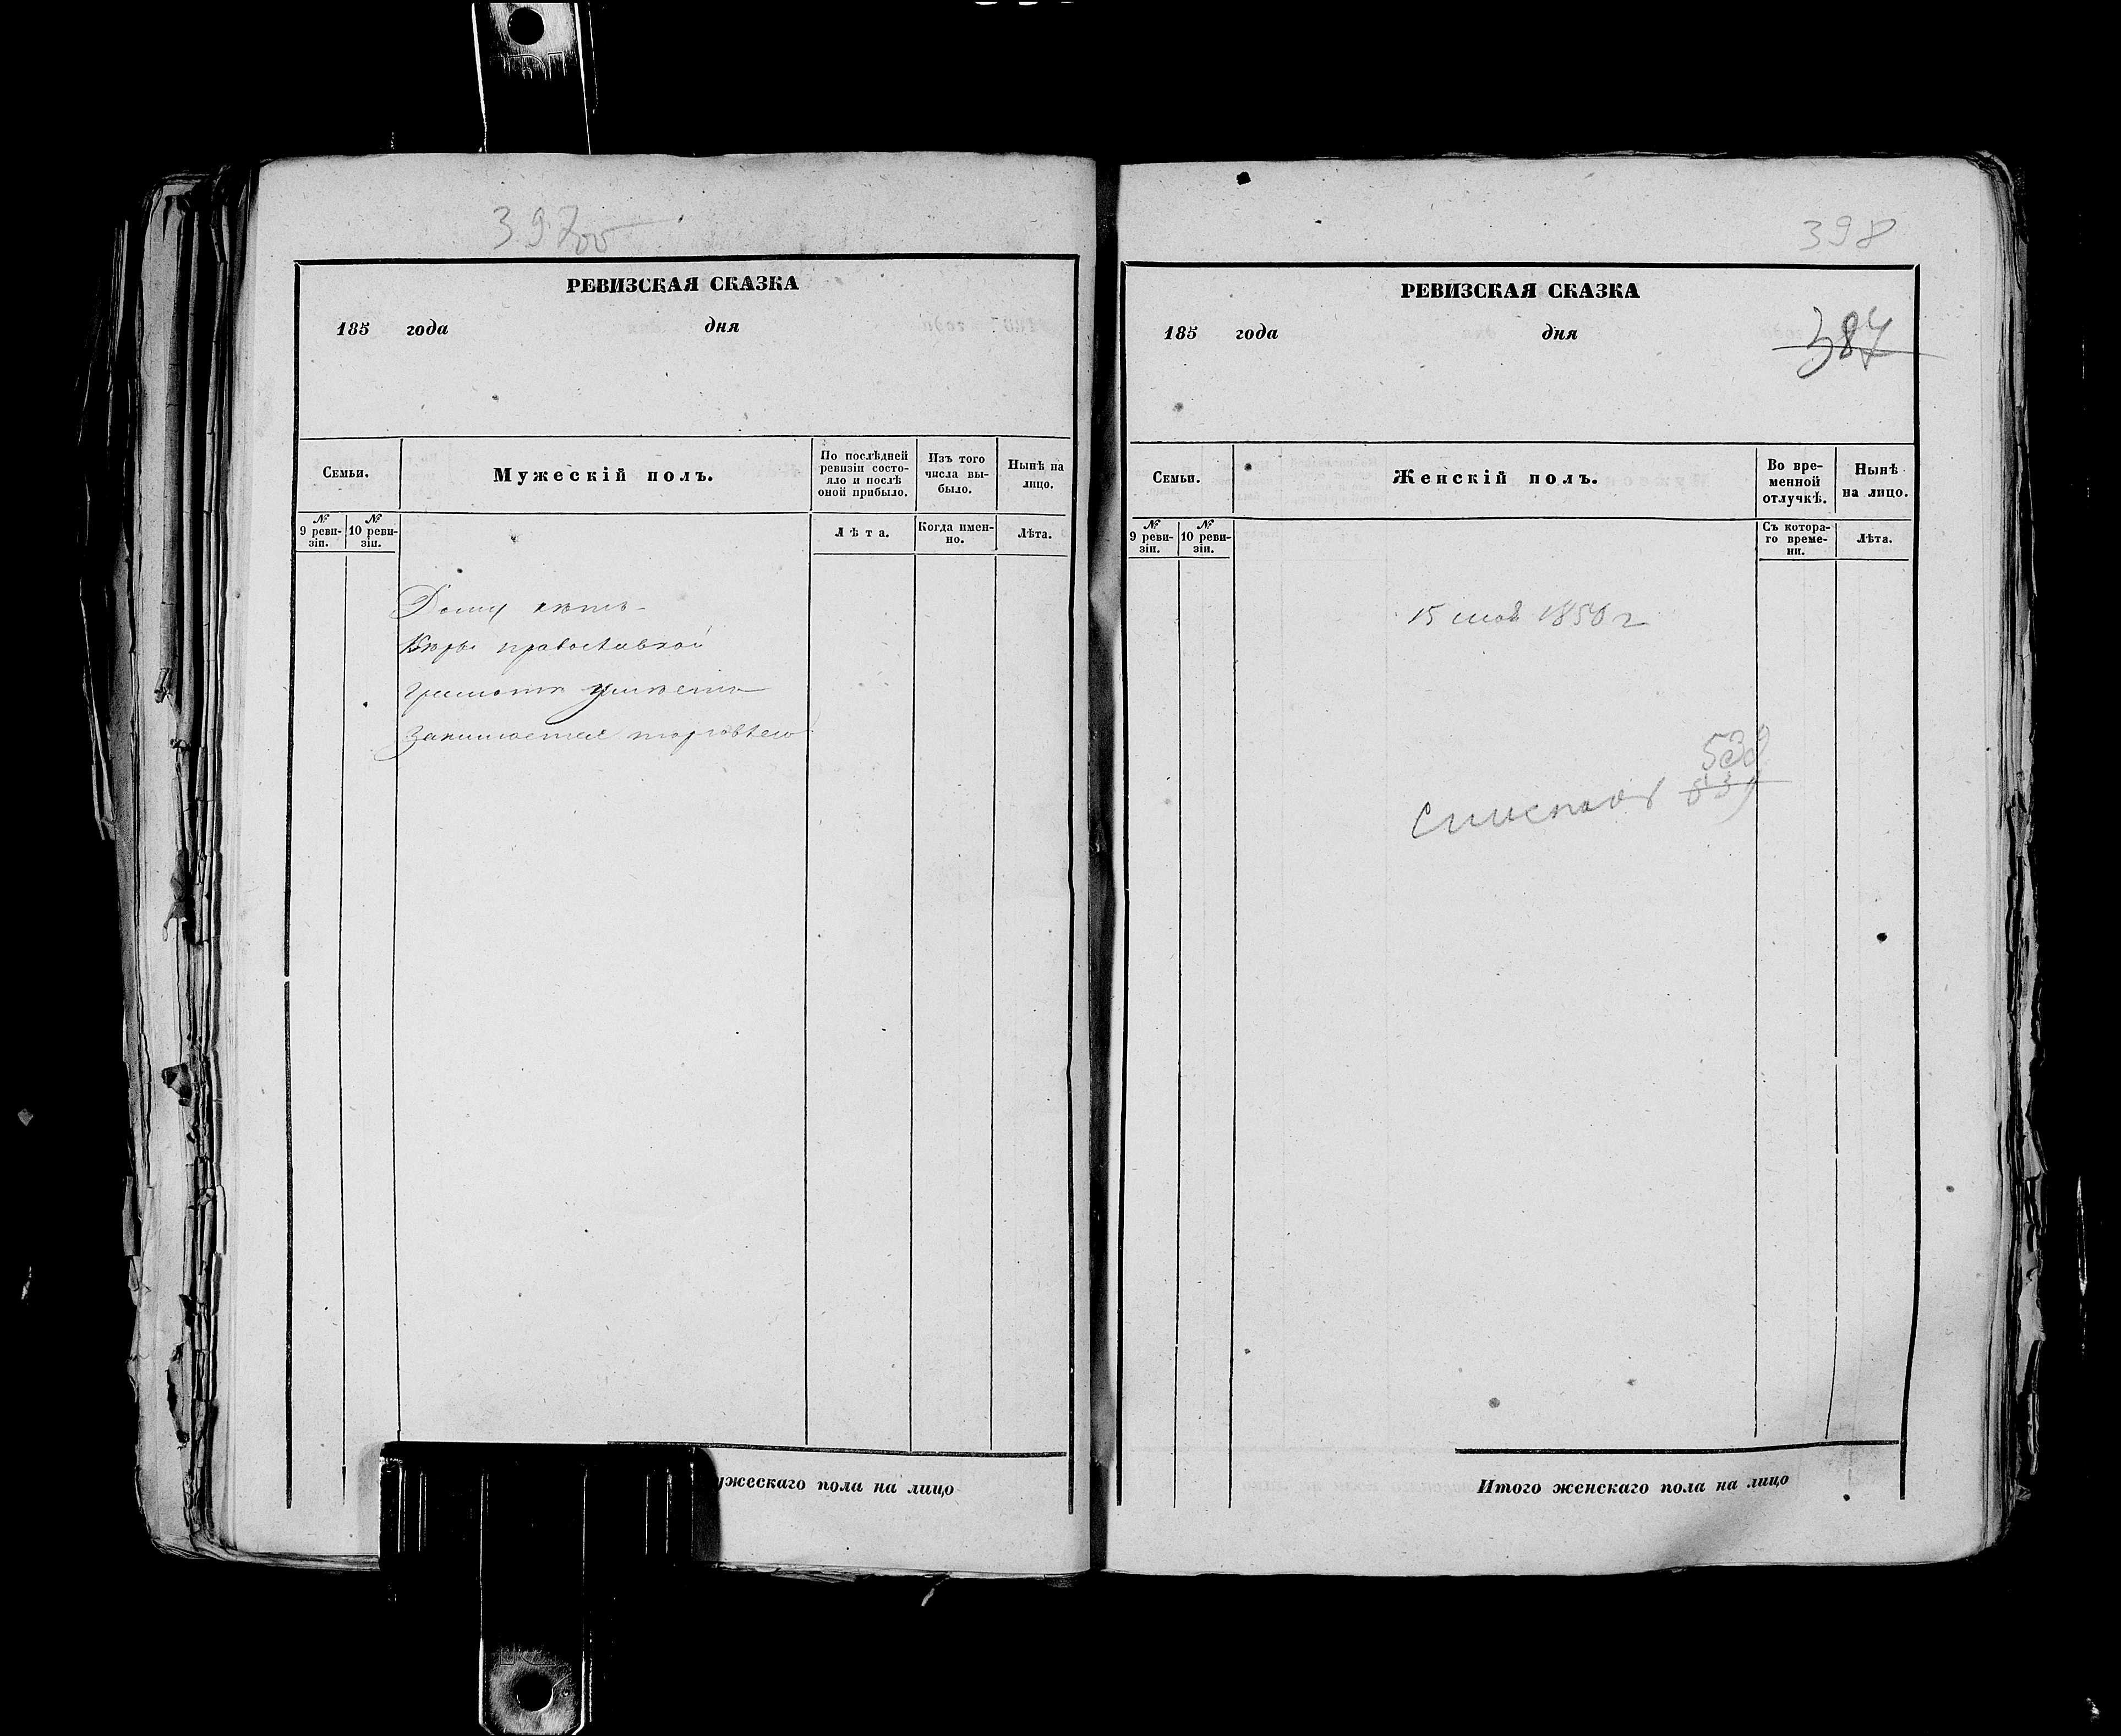 397об
РЕВИЗСКАЯ СКАЗКА
185 года дня
Семьи.
Мужескій полъ.
По послѣдней ревизіи состо-
яло и послѣ оной прибыло.
Изъ того числа вы-
было.
Нынѣ на лицо.
№ 9 реви-
зіи.
№ 10 реви-
зіи.
Лѣта.
Когда имен-
но.
Лѣта.
Дому нѣтъ
Вѣры православной
Грамотѣ умѣетъ
Занимается торговлею
ужескаго пола на лицо
398
РЕВИЗСКАЯ СКАЗКА
185 года дня
387
Семьи.
Женскій полъ.
Во вре-
менной отлучкѣ.
Нынѣ на лицо.
№ 9 реви-
зіи.
№ 10 реви-
зіи.
Съ котора-
го време-
ни.
Лѣта.
15 1850 г
538
539
Итого женскаго пола на лицо